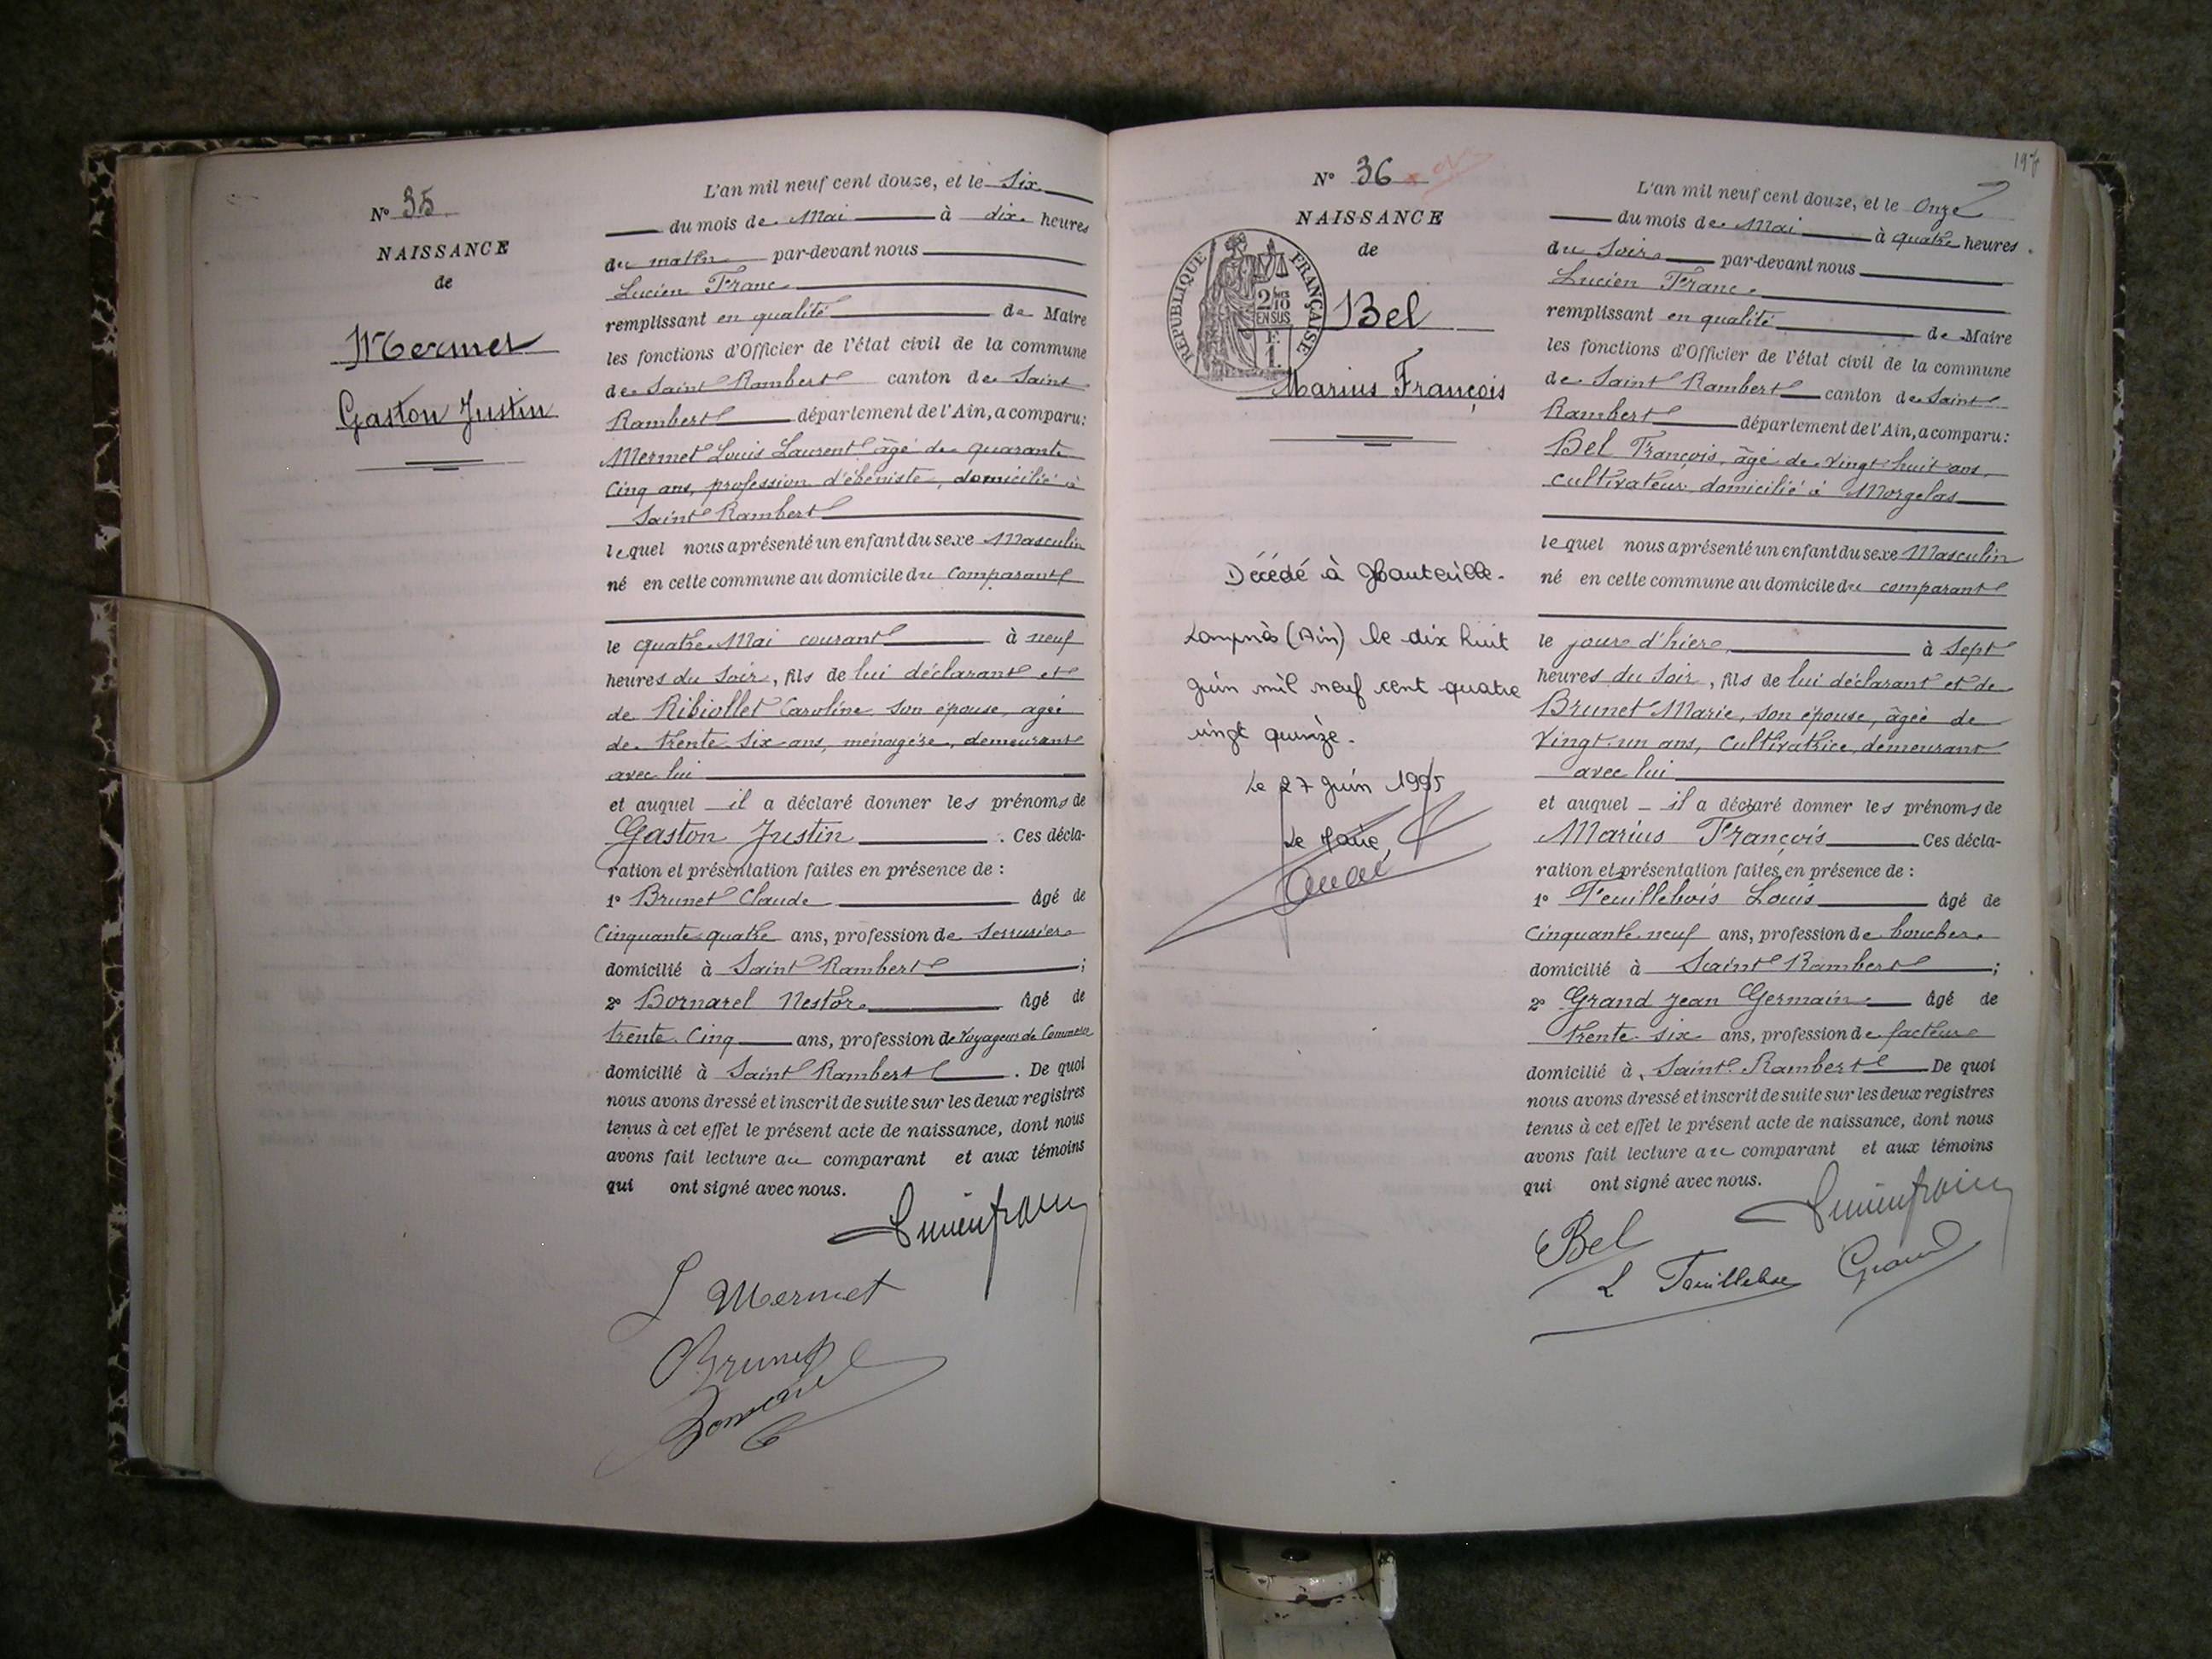 N° 35
NAISSANCE
de
Mermet
Gaston Justin
L'an mil neuf cent douze, et le Six
du mois de Mai à dix heures
du matin par-devant nous
Lucien Franc
remplissant en qualité de Maire
les fonctions d'Officier de l'état civil de la commune
de Saint Rambert canton de Saint
Rambert département de l'Ain, a comparu:
Mermet Louis Laurent âgé de quarante
cinq ans, profession d'ébéniste, domicilié à
Saint Rambert
lequel nous a présenté un enfant du sexe Masculin
né en cette commune au domicile du Comparant
le quatre Mai courant à neuf
heures du soir, fils de lui déclarant et
de Ribiollet Caroline son épouse, agée
de trente six ans, ménagère, demeurant
avec lui
et auquel il a déclaré donner les prénoms de
Gaston Justin . Ces décla-
ration et présentation faites en présence de :
1° Brunet Claude âgé de
Cinquante quatre ans, profession de Serrurier
domicilié à Saint Rambert ;
2° Bornarel Nestor âgé de
trente Cinq ans, profession de Voyageur de Commerce
domicilié à Saint Rambert . De quoi
nous avons dressé et inscrit de suite sur les deux registres
tenus à cet effet le présent acte de naissance, dont nous
avons fait lecture au comparant et aux témoins
qui ont signé avec nous.
Lucien franc
L Mermet
Brunet
Bornarel
N° 36
NAISSANCE
de
RÉPUBLIQUE FRANÇAISE
2/10
EN SUS
F.
1.
Bel
Marius François
Décédé à Hauteville-
Lompnès (Ain) le dix huit
juin mil neuf cent quatre
vingt quinze.
Le 27 Juin 1995
Le Maire,
197
L'an mil neuf cent douze, et le Onze
du mois de Mai à quatre heures
du Soir par-devant nous
Lucien Franc
remplissant en qualité de Maire
les fonctions d'Officier de l'état civil de la commune
de Saint Rambert canton de Saint
Rambert département de l'Ain, a comparu:
Bel François, âgé de vingt-huit ans,
cultivateur domicilié à Morgelas
lequel nous a présenté un enfant du sexe Masculin
né en cette commune au domicile du comparant
le jour d'hier, à Sept
heures du soir, fils de lui déclarant et de
Brunet Marie, son épouse, âgée de
Vingt-un ans, Cultivatrice, demeurant
avec lui
et auquel il a déclaré donner les prénoms de
Marius François Ces décla-
ration et présentation faites en présence de :
1° Feuillebois Louis âgé de
Cinquante neuf ans, profession de boucher
domicilié à Saint Rambert ;
2° Grand Jean Germain âgé de
trente six ans, profession de facteur
domicilié à Saint Rambert De quoi
nous avons dressé et inscrit de suite sur les deux registres
tenus à cet effet le présent acte de naissance, dont nous
avons fait lecture au comparant et aux témoins
qui ont signé avec nous.
Lucien franc
Bel
L Feuillebois Grand